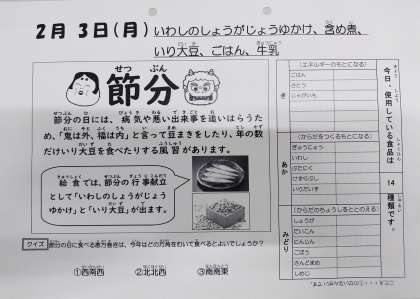 2月 3日(月) いわしのしょうがじょうゆかけ、含め煮、
いり大豆、ごはん、牛乳
せつ ぶん
節分
節分の日には、病気や悪い出来事を追いはらうた
め、「鬼は外、福は内」と言って豆まきをしたり、年の数
だけいり大豆を食べたりする風習があります。
給食では、節分の行事献立
として「いわしのしょうがじょう
ゆかけ」と「いり大豆」が出ます。
クイズ 節分の日に食べる恵方巻きは、今年はどの方角をむいて食べるとよいでしょうか?
①西南西 ②北北西 ③南南東
今日、使用している食品は
14
種類です。
き
(エネルギーのもとになる)
ごはん
さとう
じゃがいも
あか
(からだをつくるもとになる)
ぎゅうにゅう
いわし
ぶたにく
けずりぶし
いりだいず
みどり
(からだのちょうしをととのえる)
しょうが
だいこん
にんじん
ごぼう
さんどまめ
しめじ